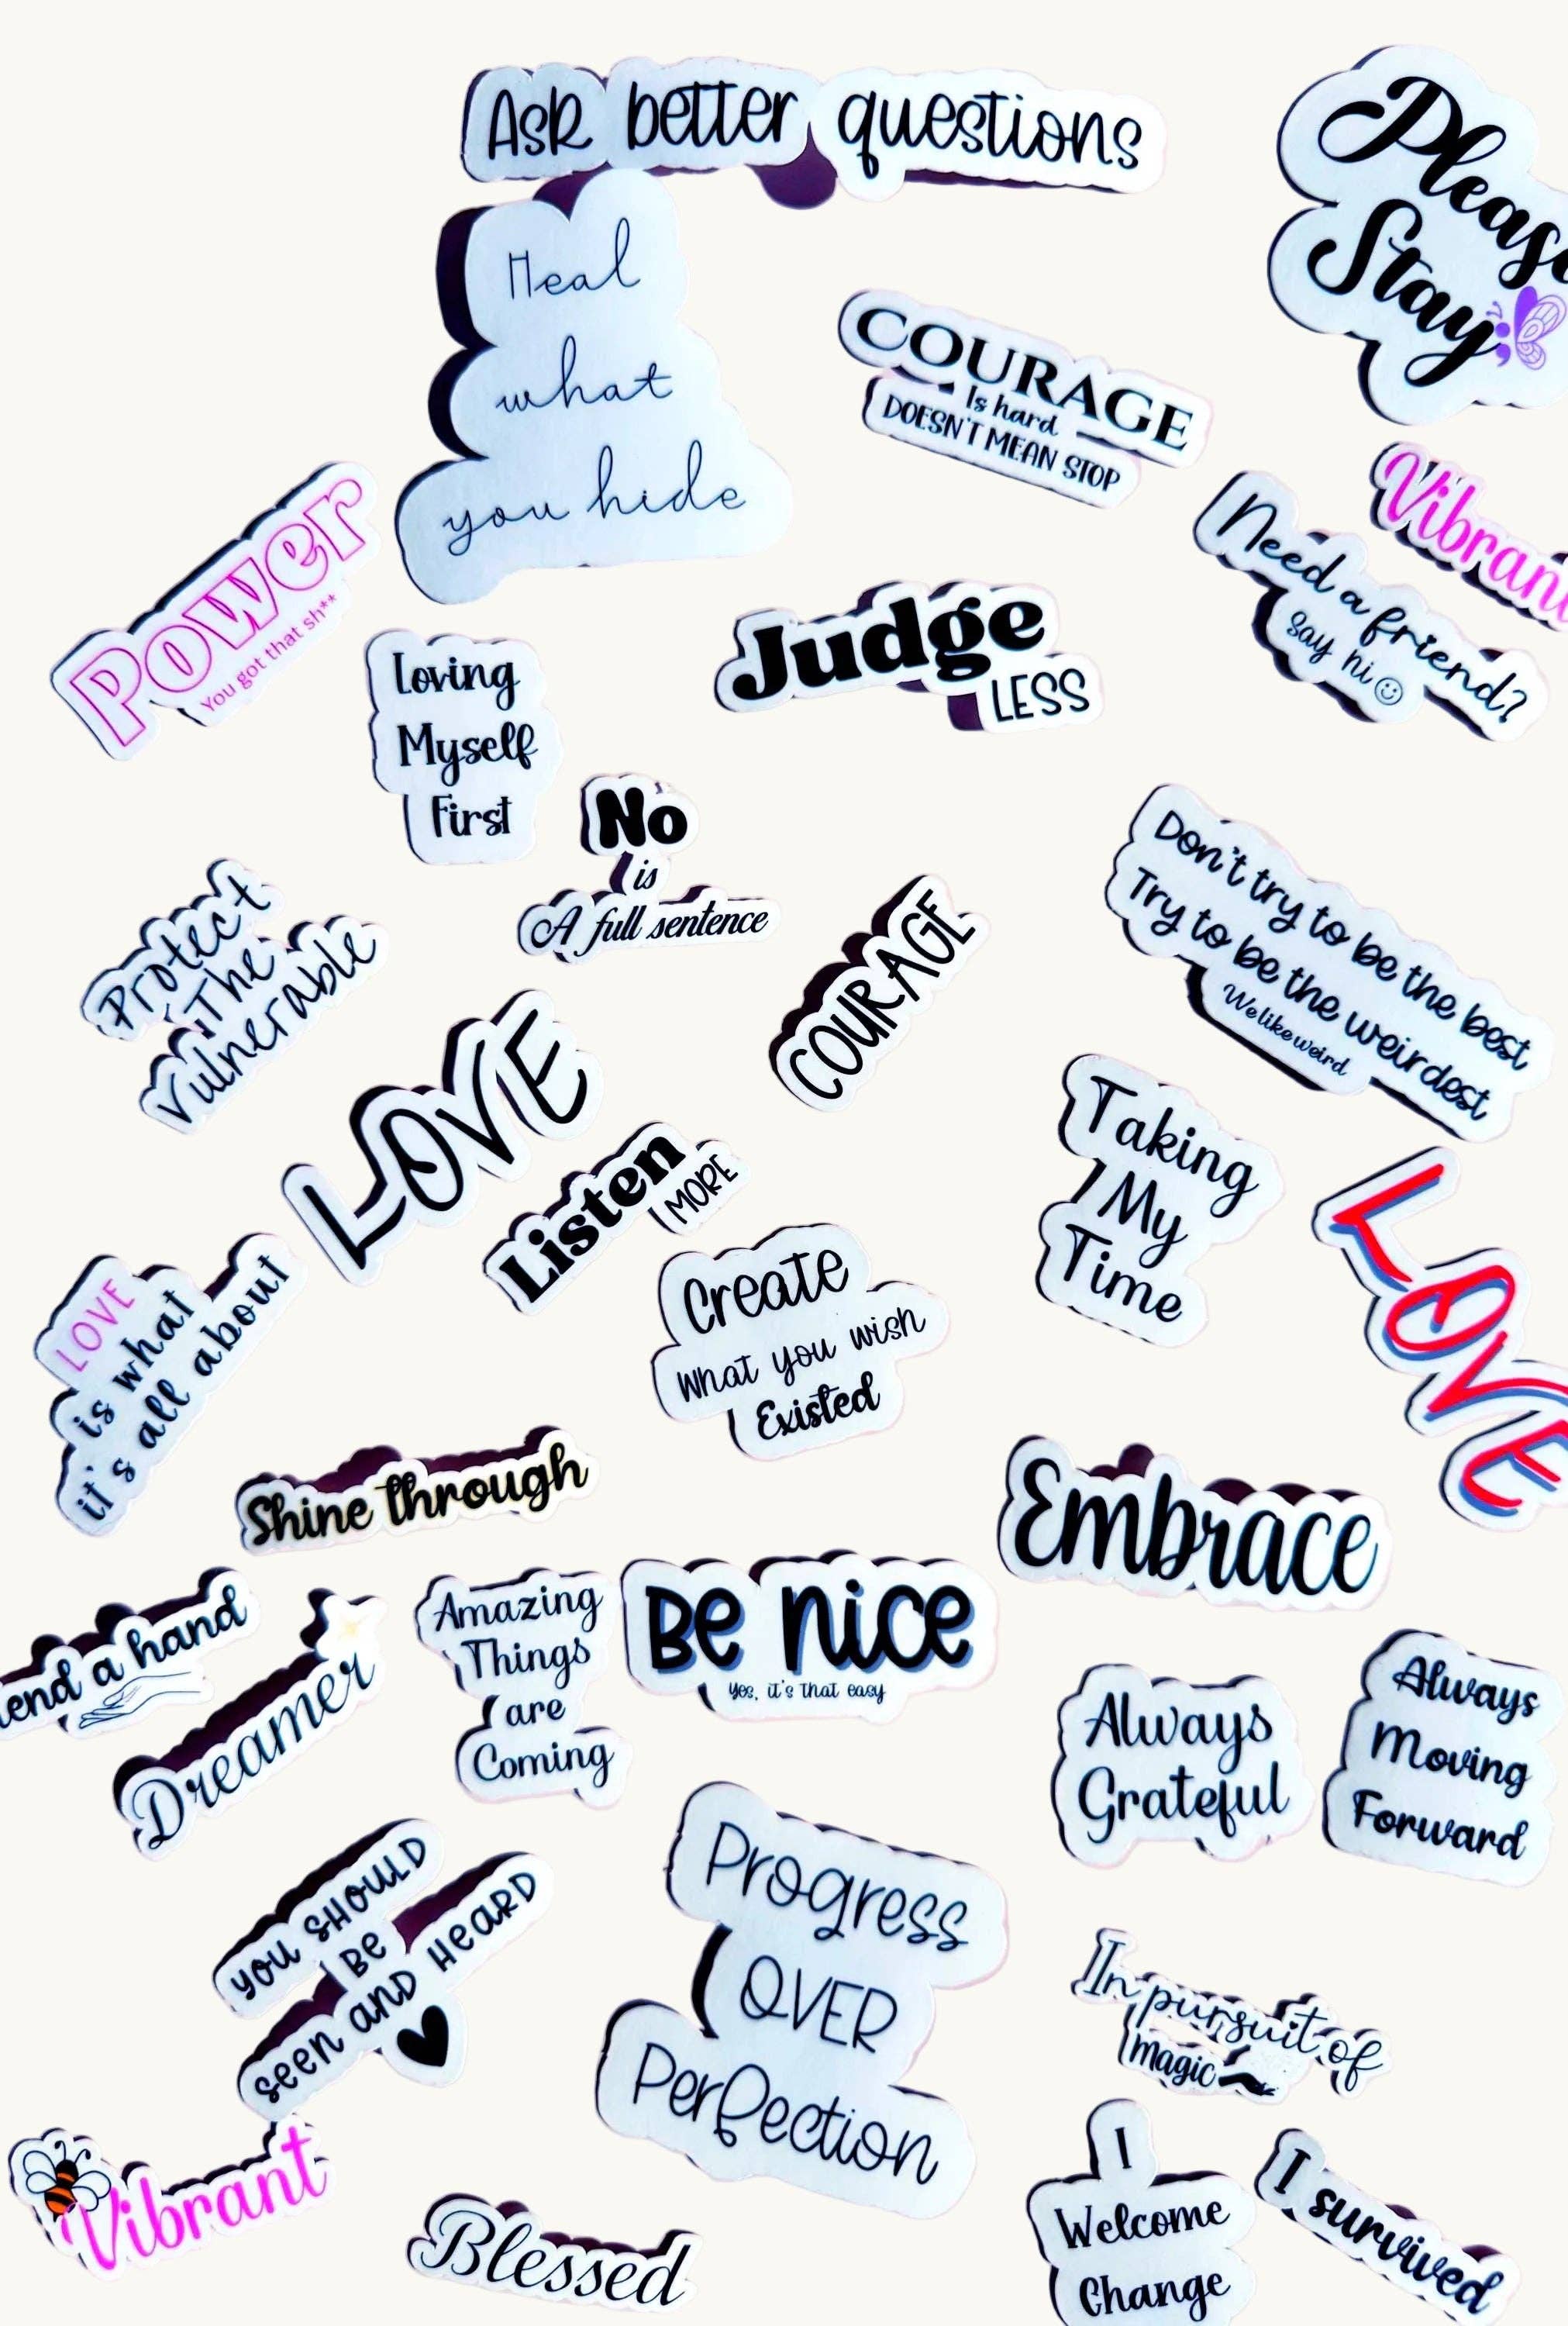 Ask better questions
Please
Stay
Heal
what
you hide
COURAGE
Is hard
DOESN'T MEAN STOP
Vibrant
Need a friend?
say hi
Power
You got that sh**
Judge
LESS
Loving
Myself
First
No
is
A full sentence
Don't try to be the best
Try to be the weirdest
We like weird
Protect
The
Vulnerable
COURAGE
LOVE
Listen
MORE
Taking
My
Time
LOVE
LOVE
is what
it's all about
Create
What you wish
Existed
Shine through
Embrace
Lend a hand
Dreamer
Amazing
Things
are
Coming
Be nice
Yes, it's that easy
Always
Grateful
Always
Moving
Forward
YOU SHOULD
BE
seen AND HEARD
Progress
OVER
Perfection
In pursuit of
magic
Vibrant
Blessed
I
Welcome
Change
I survived